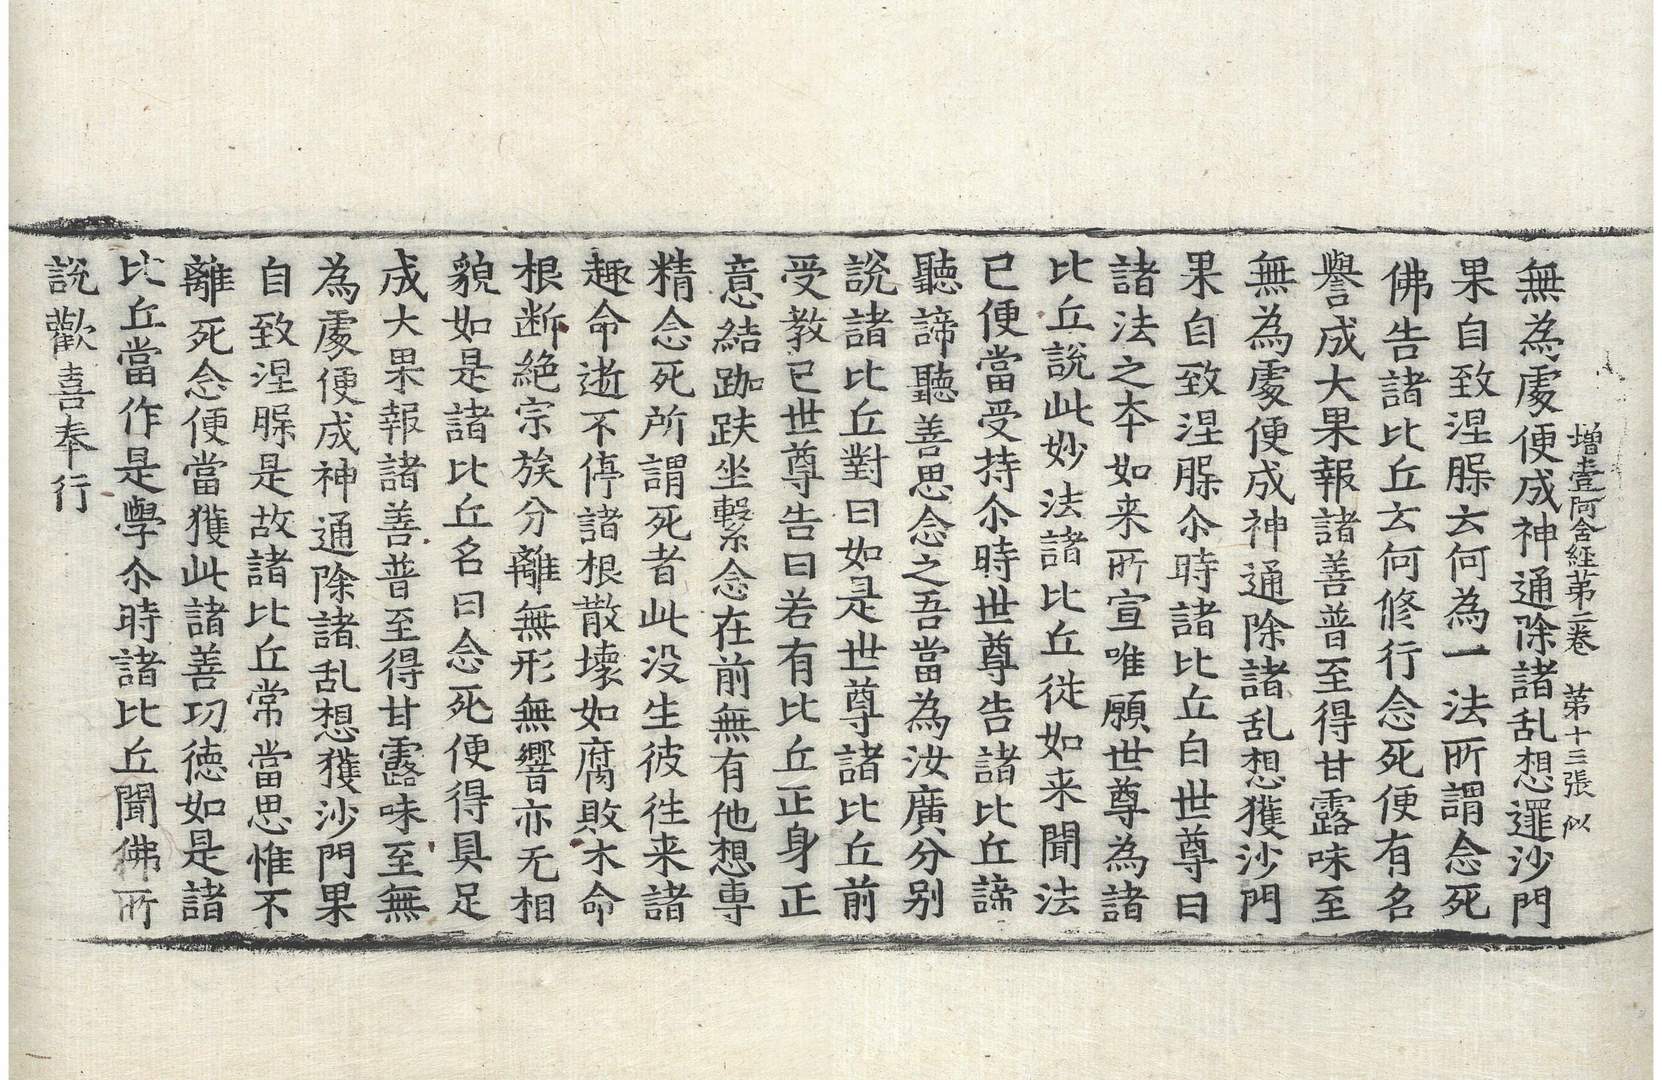 增壹阿含經第二卷　第十三張　似
無為處便成神通除諸乱想逻沙門
果自致涅脲云何為一法所謂念死
佛告諸比丘云何修行念死便有名
譽成大果報諸善普至得甘露味至
無為處便成神通除諸乱想獲沙門
果自致涅脲尒時諸比丘白世尊曰
諸法之夲如来所宣唯願世尊為諸
比丘說此妙法諸比丘從如来聞法
已便當受持尒時世尊告諸比丘諦
聽諦聽善思念之吾當為汝廣分别
說諸比丘對曰如是世尊諸比丘前
受教已世尊告曰若有比丘正身正
意結跏趺坐繫念在前無有他想專
精念死所謂死者此没生彼往来諸
趣命逝不停諸根散壞如腐敗木命
根断絶宗族分離無形無響亦无相
貌如是諸比丘名曰念死便得具足
成大果報諸善普至得甘露味至無
為處便成神通除諸乱想獲沙門果
自致涅脲是故諸比丘常當思惟不
離死念便當獲此諸善功徳如是諸
比丘當作是學尒時諸比丘聞佛所
說歡喜奉行